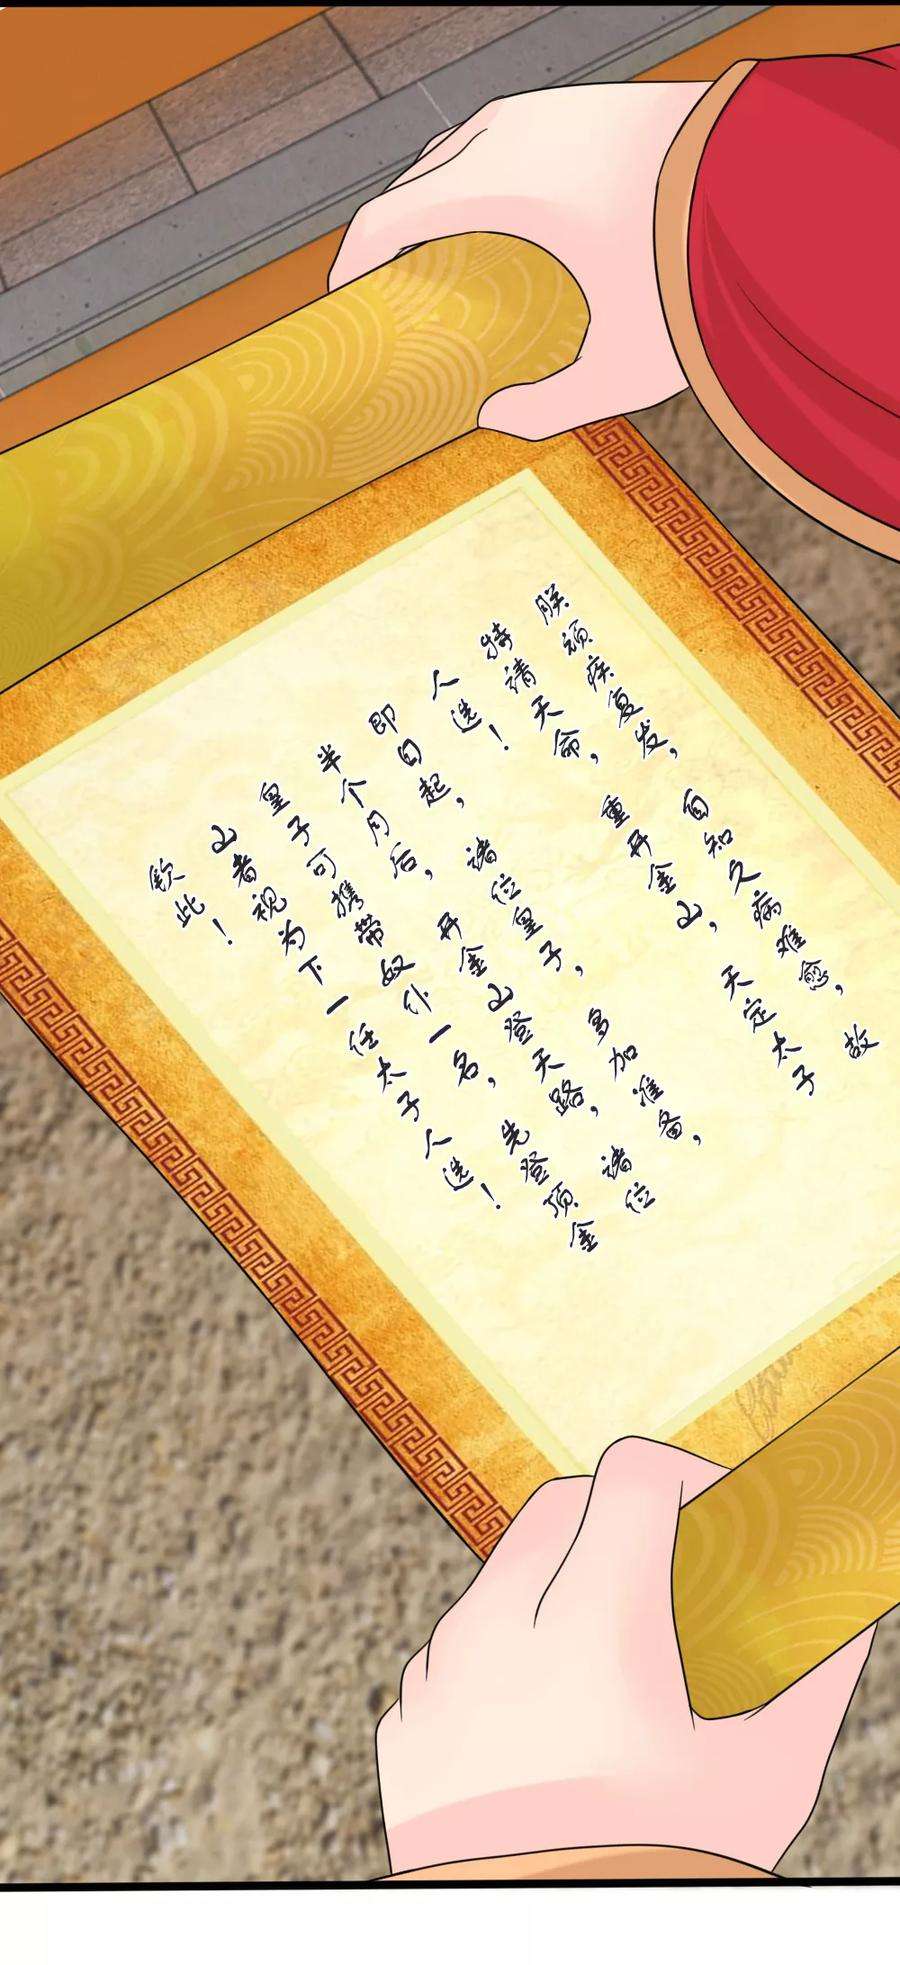 朕顽疾复发，自知久病难愈，故
特请天命，重开金山，天定太子
人选！
即日起，诸位皇子，多加准备，
半个月后，开金山登天路，诸位
皇子可携带奴仆一名，先登顶金
山者视为下一任太子人选！
钦此！